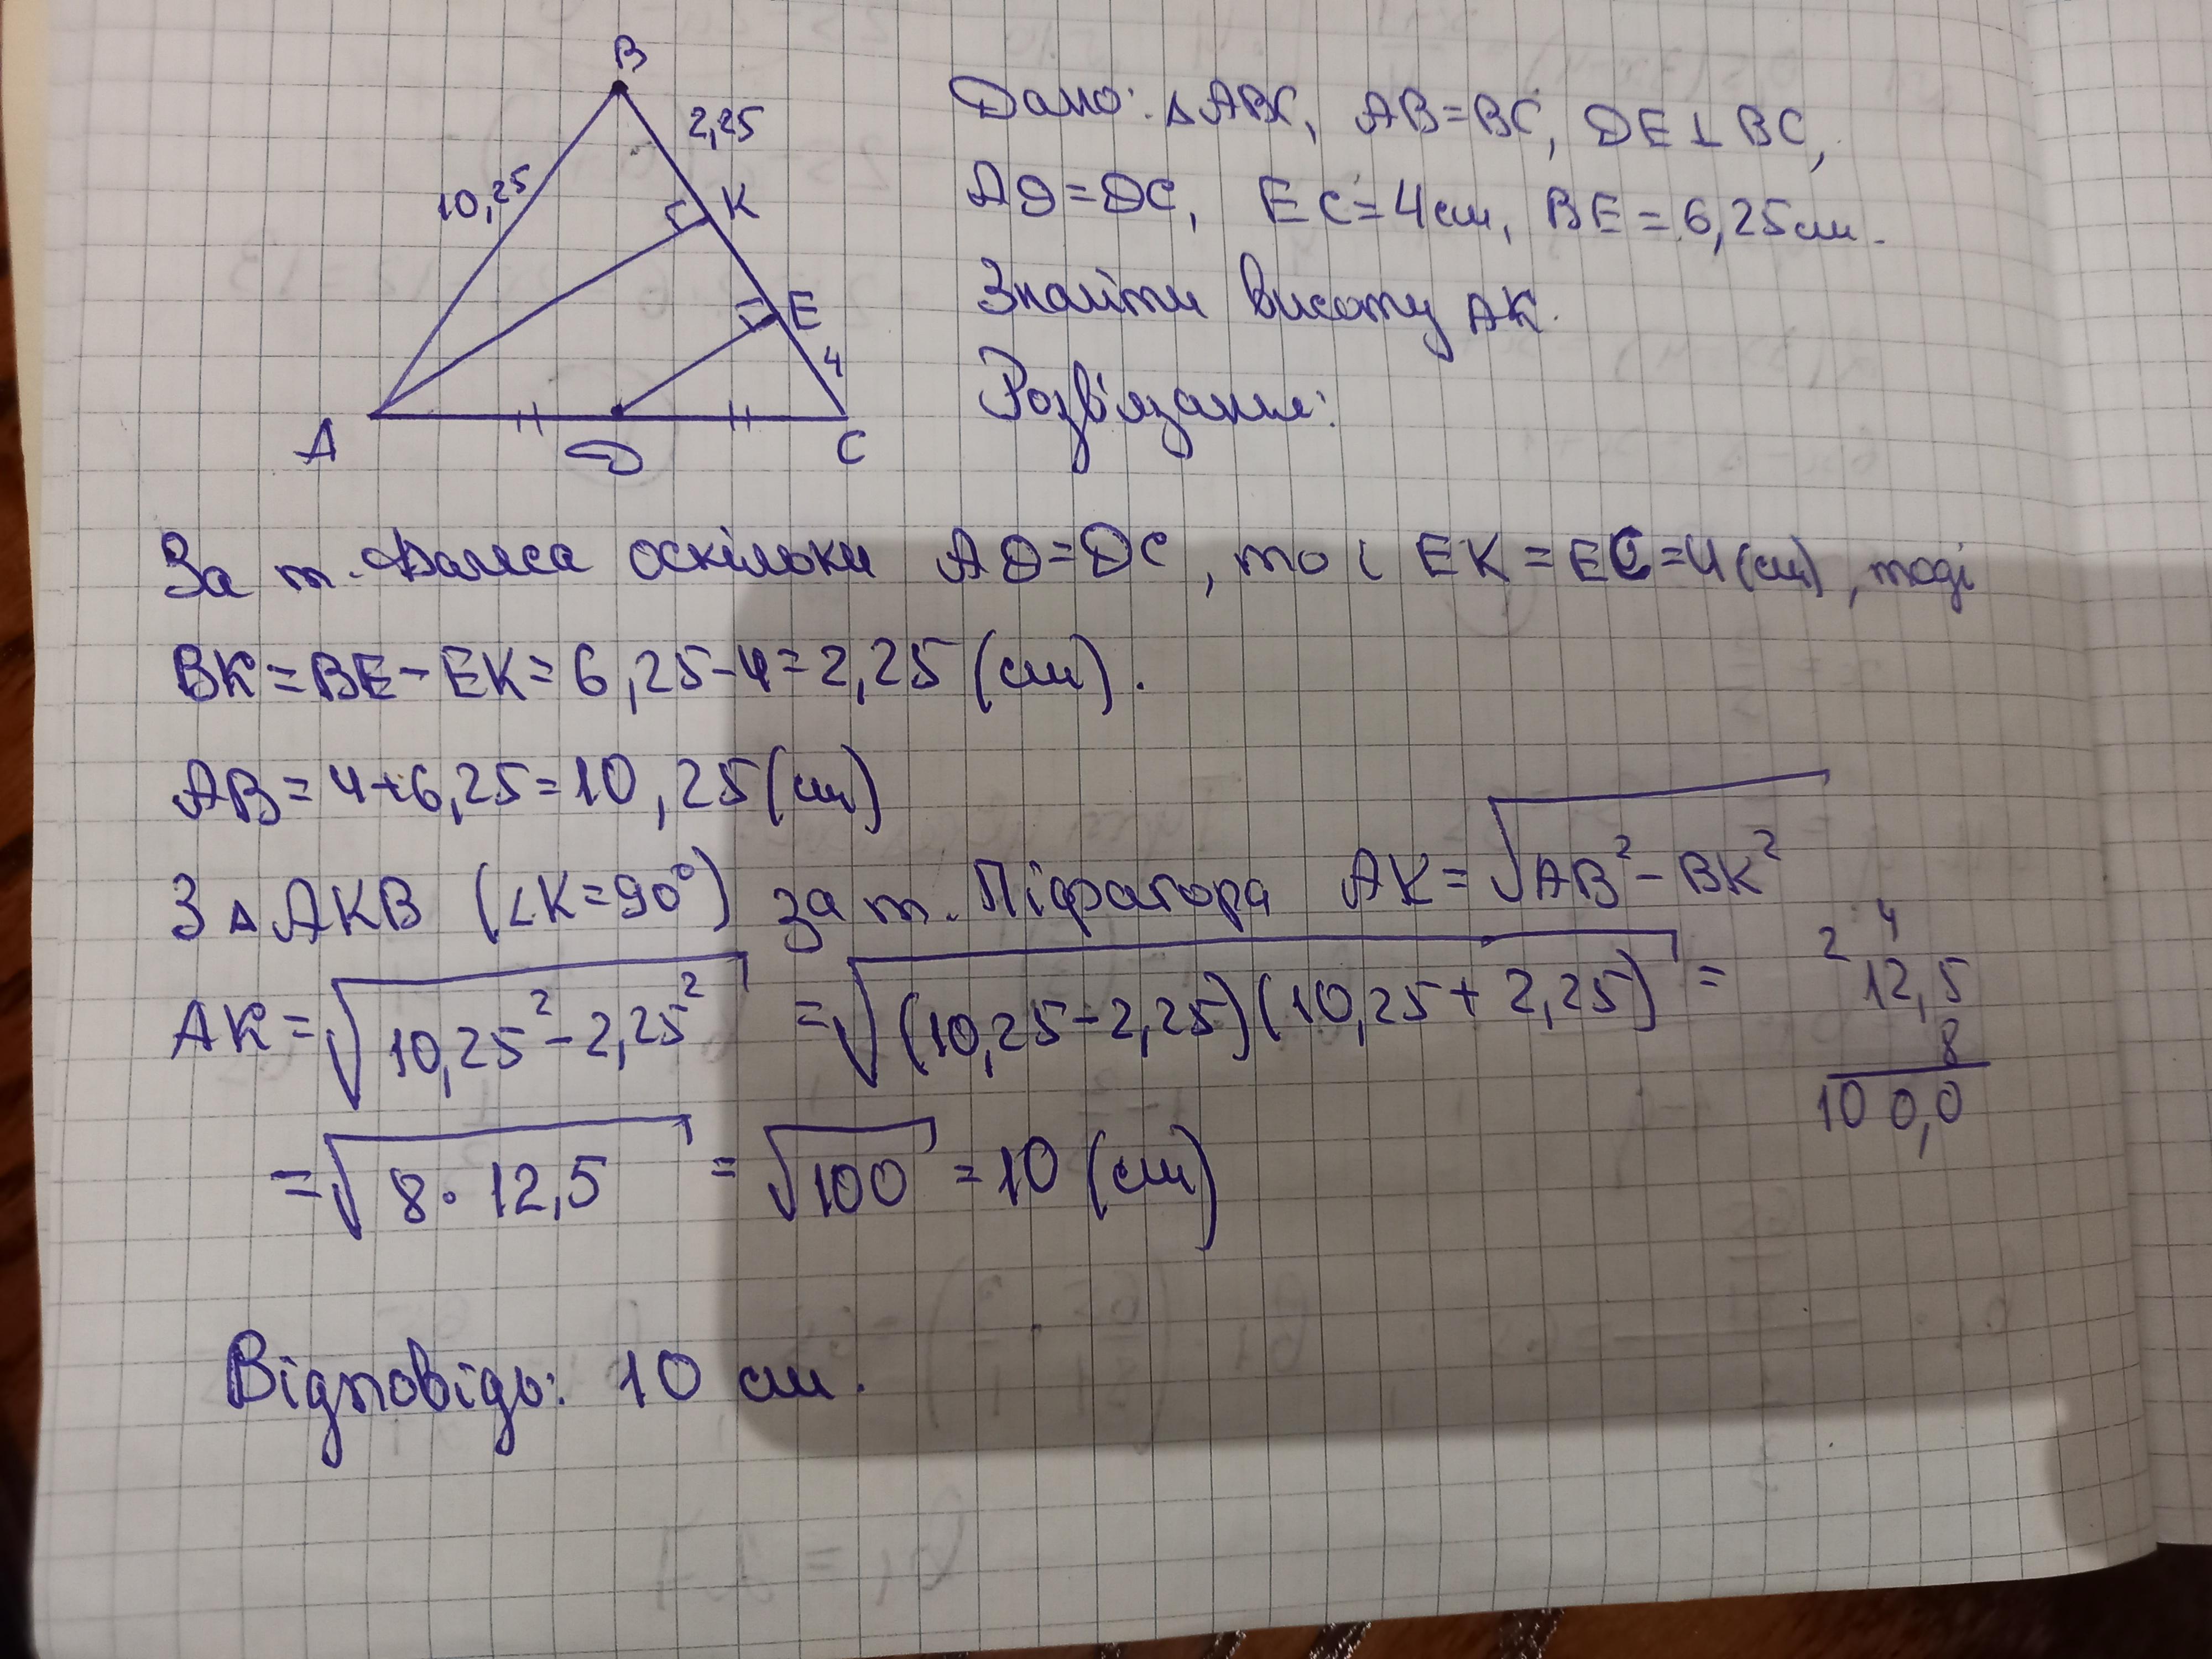 B
2,25
10,25
K
E
4
A
D
C
Дано: △ABC, AB=BC, DE⊥BC,
AD=DC, EC=4см, BE=6,25см.
Знайти висоту AK.
Розв'язання:
За т. Фалеса оскільки AD=DC, то і EK=EC=4(см), тоді
BK=BE-EK=6,25-4=2,25(см).
AB=4+6,25=10,25(см)
З △AKB (∠K=90°) за т. Піфагора AK=√AB²-BK²
AK=√10,25²-2,25² =√(10,25-2,25)(10,25+2,25) =
2 4
12,5
8
100,0
=√8·12,5 =√100 =10 (см)
Відповідь: 10 см.